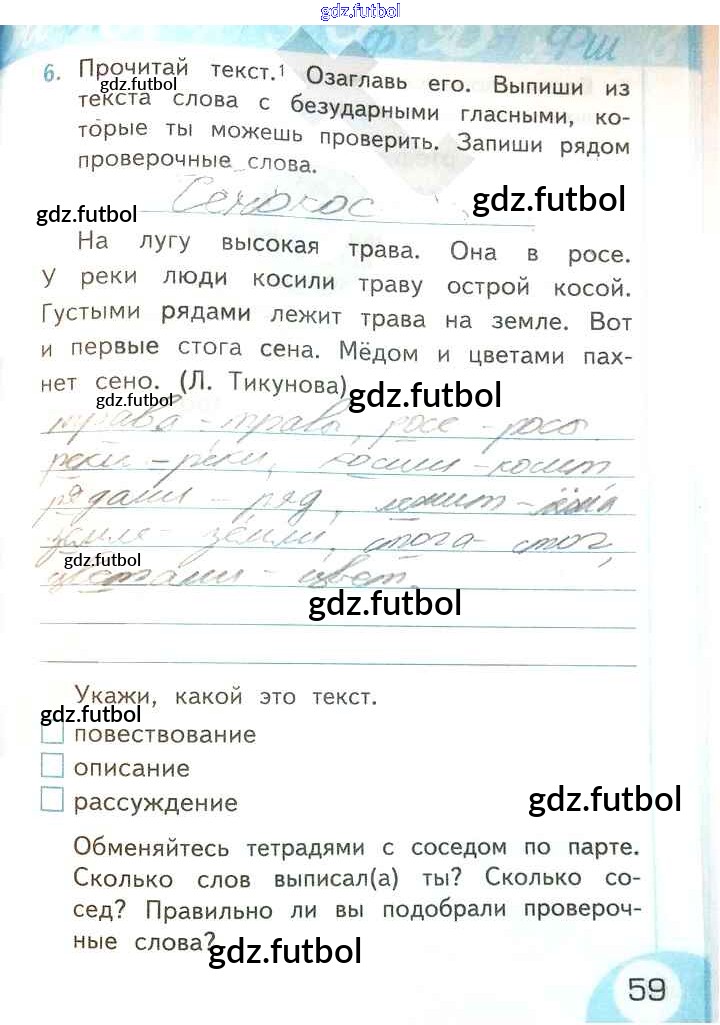 gdz.futbol
6. Прочитай текст.¹ Озаглавь его. Выпиши из
gdz.futbol
текста слова с безударными гласными, ко-
торые ты можешь проверить. Запиши рядом
проверочные слова.
Сенокос
gdz.futbol
gdz.futbol
На лугу высокая трава. Она в росе.
У реки люди косили траву острой косой.
Густыми рядами лежит трава на земле. Вот
и первые стога сена. Мёдом и цветами пах-
нет сено. (Л. Тикунова)
gdz.futbol
gdz.futbol
трава – травы, росе – росы
реки – реки, косили – косит
рядами – ряд, лежит –
земле – земли, стога – стог,
цветами – цвет.
gdz.futbol
gdz.futbol
Укажи, какой это текст.
gdz.futbol
повествование
описание
рассуждение
gdz.futbol
Обменяйтесь тетрадями с соседом по парте.
Сколько слов выписал(а) ты? Сколько со-
сед? Правильно ли вы подобрали провероч-
ные слова?
gdz.futbol
59